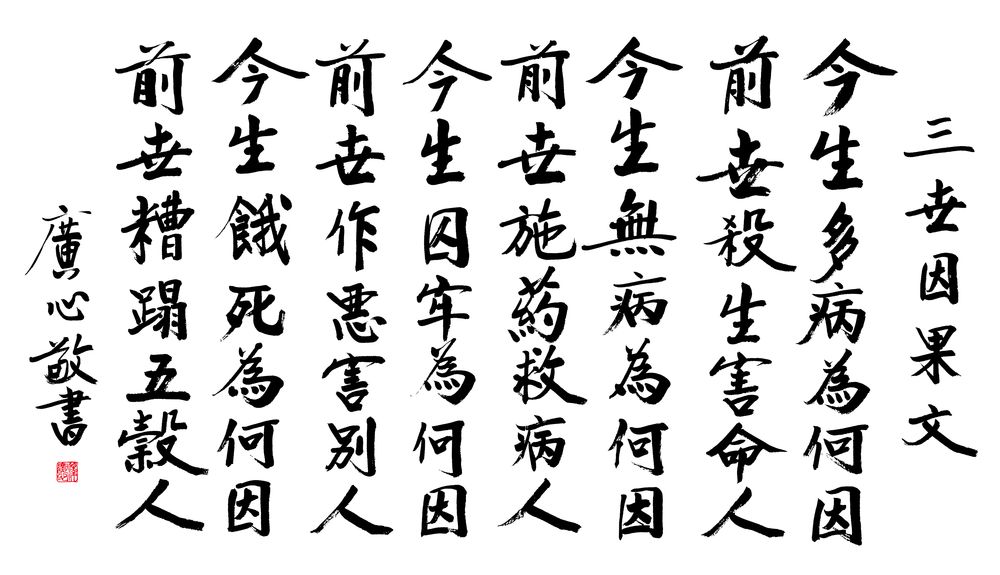 三世因果文
今生多病為何因
前世殺生害命人
今生無病為何因
前世施药救病人
今生囚牢為何因
前世作悪害別人
今生餓死為何因
前世糟蹋五穀人
廣心敬書